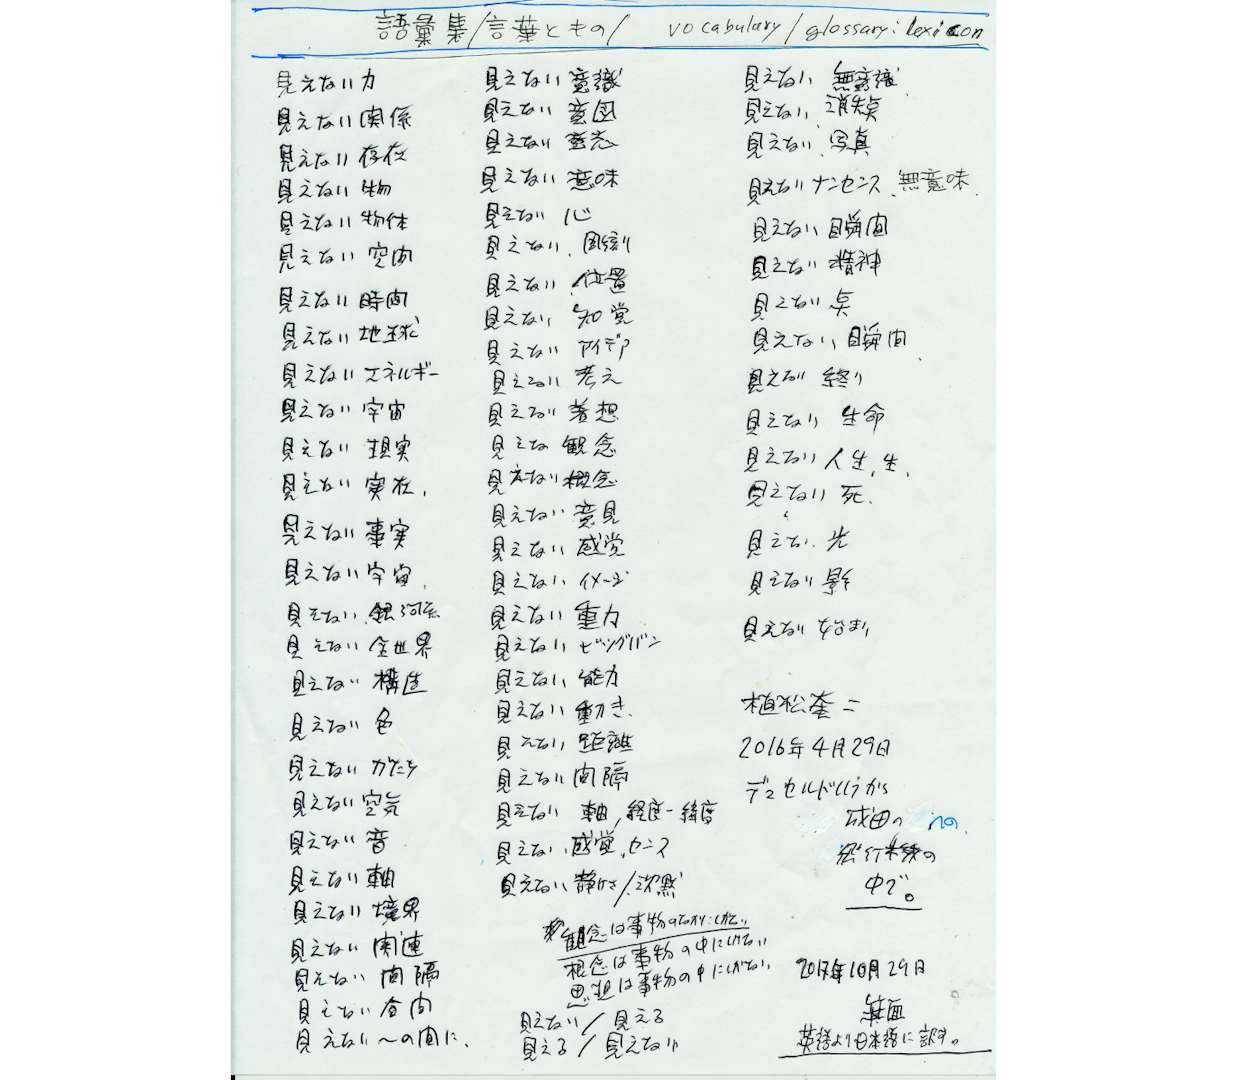 語彙集/言葉ともの/ vocabulary/glossary:lexicon
見えない力
見えない関係
見えない存在
見えない物
見えない物体
見えない空間
見えない時間
見えない地球
見えないエネルギー
見えない宇宙
見えない現実
見えない実在,
見えない事実
見えない宇宙.
見えない銀河系
見えない全世界
見えない構造
見えない色
見えないかたち
見えない空気
見えない音
見えない軸
見えない境界
見えない関連
見えない間隔
見えない合間
見えない〜の間に、
見えない意識
見えない意図
見えない意志
見えない意味
見えない心
見えない、彫刻
見えない位置
見えない知覚
見えないアイデア
見えない考え
見えない着想
見えな観念
見えない概念
見えない意見
見えない感覚
見えないイメージ
見えない重力
見えないビッグバン
見えない能力
見えない動き、
見えない距離
見えない間隔
見えない軸,経度-緯度
見えない感覚、センス
見えない静けさ/沈黙
観念は事物のなかにしかない
想念は事物の中にしかない
思想は事物の中にしかない
見えない/見える
見える/見えない
見えない無意識
見えない、消失点
見えない、写真
見えないナンセンス、無意味、
見えない瞬間
見えない精神
見えない点
見えない瞬間
見えない終り
見えない生命
見えない人生,生、
見えない死、
見えない光
見えない影
見えない始まり
植松奎二
2016年4月29日
デュセルドルフから
成田への
飛行機の
中で。
2017年10月29日
箕面
英語より日本語に訳す。